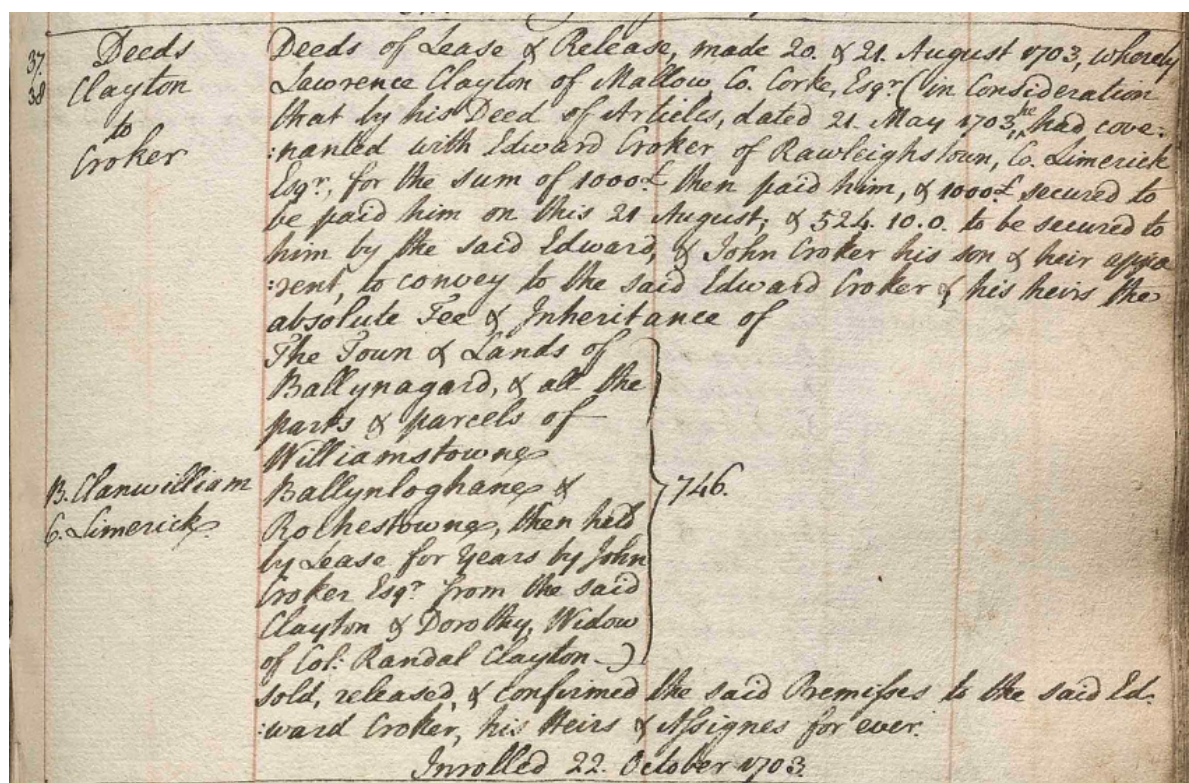 37. Deeds
38 Clayton
to
Croker
Deeds of Lease & Release, made 20. & 21. August 1703, whereby
Lawrence Clayton of Mallow Co. Corke, Esqr. (in Consideration
that by his Deed of Articles, dated 21. May 1703, he had cove-
:nanted with Edward Croker of Rawleighstown, Co. Limerick
Esqr., for the sum of 1000£ then paid him, & 1000£ secured to
be paid him on this 21 August; & 524. 10. 0. to be secured to
him by the said Edward, & John Croker his son & heir appa
:rent, to convey to the said Edward Croker & his heirs the
absolute Fee & Inheritance of
The Town & Lands of
Ballynagard, & all the
parts & parcels of
Williamstowne
Ballynloghane &
Rochestowne, then held
by Lease for Years by John
Croker Esqr. from the said
Clayton & Dorothy, Widow
of Col: Randal Clayton—)
746.
B. Clanwilliam
C. Limerick
sold, released, & confirmed the said Premisses to the said Ed-
:ward Croker, his Heirs & Assignes for ever.
Inrolled 22. October 1703.